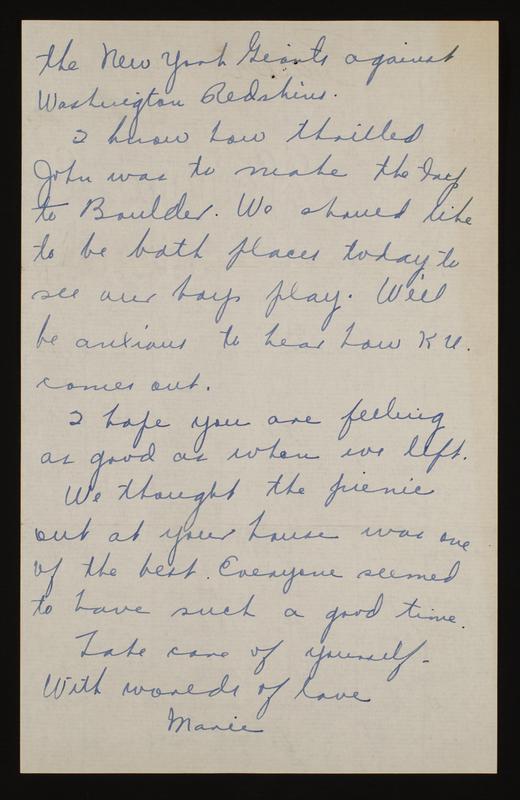 the New York Giants against
Washington Redskins.
I know how thrilled
John was to make the trip
to Boulder. We should like
to be both places today to
see our boys play. We'll
be anxious to hear how K.U.
comes out.
I hope you are feeling
as good as when we left.
We thought the picnic
out at your house was one
of the best. Everyone seemed
to have such a good time.
Take care of yourself.
With worlds of love
Marie